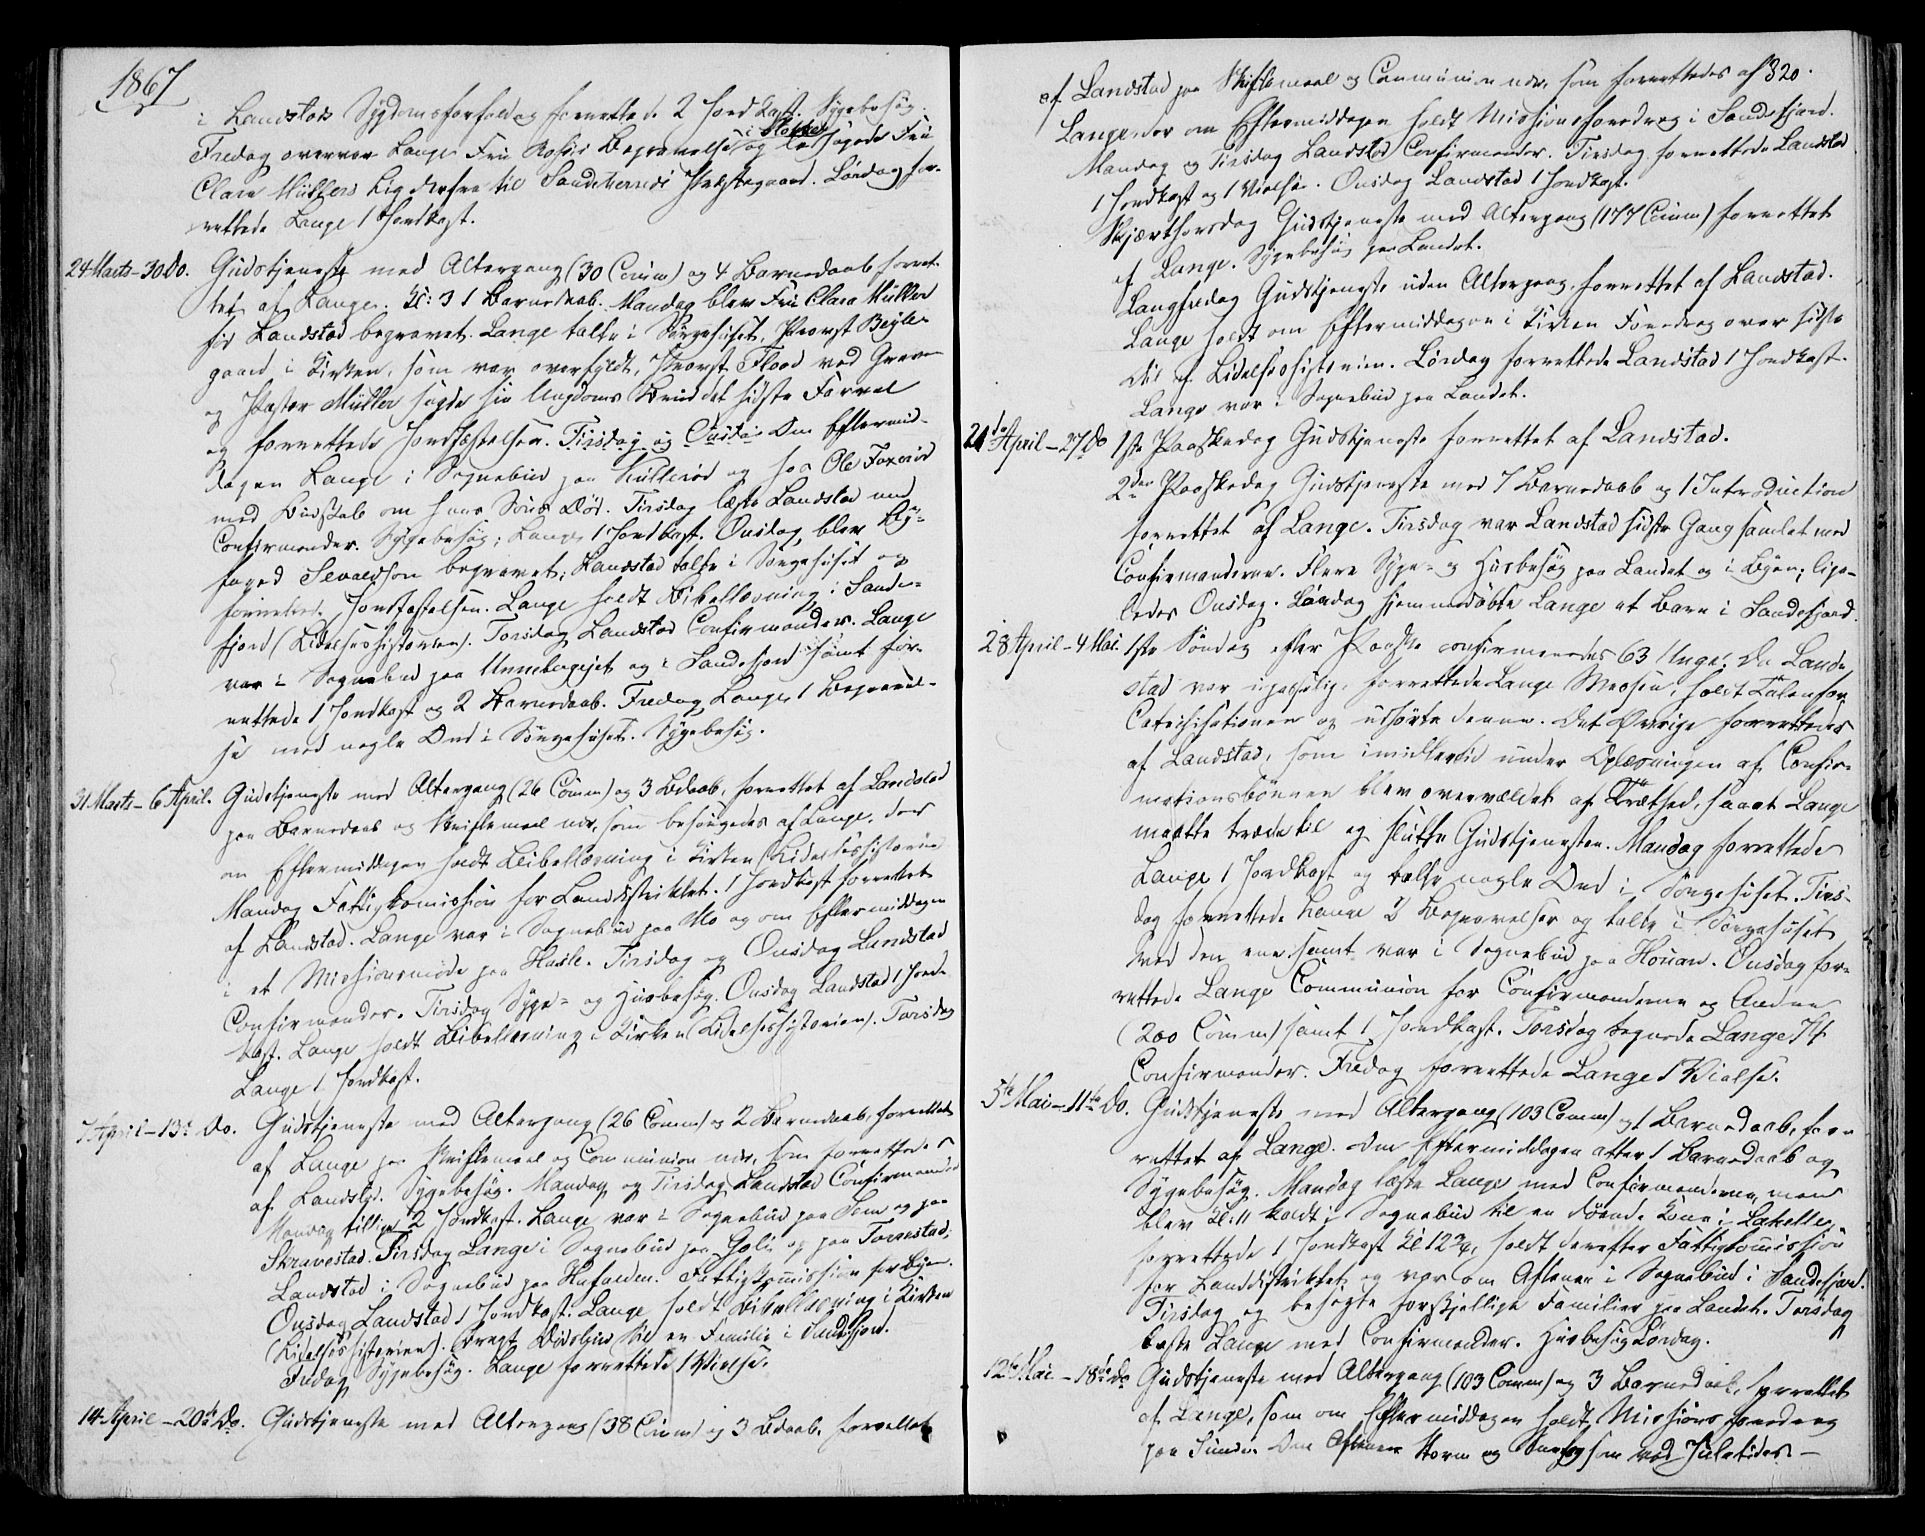 1867
i Landstads Sygdomsforfald og forrettede 2 Jordkast. Sygebesøg.
Fredag overvar Lange Fru Begravelse i Stokke og ledsagede Fru
Clara Müllers Lig derfra til Sandeherreds Præstegaard. Lørdag for-
rettede Lange 1 Jordkast.
24 Marts – 30 do. Gudstjeneste med Altergang (30 Comm) og 4 Barnedaab forret-
tet af Lange. Kl: 3 1 Barnedaab. Mandag blev Fru Clara Müller
fød Landstad begravet. Lange talte i Sørgehuset, Provst
gaard i Kirken, som var overfyldt, Provst Flood ved Graven
og Pastor Müller sagde sin Ungdoms det sidste Farvel
og forrettede Jordfæstelsen. Tirsdag og Onsdag Om Eftermid-
dagen Lange i Sognebud paa Kullerød og hos Ole
med Budskab om hans Søns Død. Tirsdag læste Landstad med
Confirmander. Sygebesøg; Lange 1 Jordkast. Onsdag blev By-
foged Sevaldson begravet; Landstad talte i Sørgehuset og
forrettede Jordfæstelsen. Lange holdt Bibellæsning i Sande-
fjord (Lidelseshistorien). Torsdag Landstad Confirmander. Lange
var i Sognebud paa Unnebergejet og i Sandefjord samt for-
rettede 1 Jordkast og 2 Barnedaab. Fredag Lange 1 Begravel-
se med nogle Ord i Sørgehuset. Sygebesøg.
31 Marts – 6 April. Gudstjeneste med Altergang (26 Comm) og 3 Bdaab, forrettet af Landstad
paa Barnedaab og Skriftemaal nær, som besørgedes af Lange, der
om Eftermiddagen holdt Bibellæsning i Kirken (Lidelseshistorien
Mandag Fattigkomission for Landdistriktet. 1 Jordkast forrettet
af Landstad. Lange var i Sognebud paa Mo og om Eftermiddagen
i et Missionsmøde paa Hasle. Tirsdag og Onsdag Landstad
Confirmander. Tirsdag Syge- og Husbesøg. Onsdag Landstad 1 Jord-
kast. Lange holdt Bibellæsning i Kirken (Lidelseshistorien). Torsdag
Lange 1 Jordkast.
7 April – 13de do. Gudstjeneste med Altergang (26 Comm) og 2 Barnedaab, forrettet
af Lange paa Skriftemaal og Communion nær, som forrettedes
af Landstad. Sygebesøg. Mandag og Tirsdag Landstad Confirmander
Mandag tillige 2 Jordkast. Lange var i Sognebud paa Sem og paa
Skravestad. Tirsdag Lange i Sognebud paa Goli og paa Torrestad;
Landstad i Sognebud paa. Fattigkomission for Byen.
Onsdag Landstad 1 Jordkast. Lange holdt Bibellæsning i Kirken
(Lidelseshistorien). Bragt Dødsbud til en Familie i Sandefjord.
Fredag Sygebesøg. Lange forrettede 1 Vielse.
14 April – 20de do. Gudstjeneste med Altergang (38 Comm) og 3 Bdaab, forrettet
af Landstad paa Skriftemaal og Communion nær, som forrettedes af 320.
Lange, der om Eftermiddagen holdt Missionsforedrag i Sandefjord.
Mandag og Tirsdag Landstad Confirmander. Tirsdag forrettede Landstad
1 Jordkast og 1 Vielse. Onsdag Landstad 1 Jordkast.
Skjærthorsdag Gudstjeneste med Altergang (177 Comm) forrettet
af Lange. Sygebesøg paa Landet.
Langfredag Gudstjeneste uden Altergang, forrettet af Landstad.
Lange holdt om Eftermiddagen i Kirken Foredrag over sidste
Del af Lidelseshistorien. Lørdag forrettede Landstad 1 Jordkast.
Lange var i Sognebud paa Landet.
21de April – 27 do 1ste Paaskedag Gudstjeneste forrettet af Landstad.
2den Paaskedag Gudstjeneste med 7 Barnedaab og 1 Introduction
forrettet af Lange. Tirsdag var Landstad sidste Gang samlet med
Confirmanderne. Flere Syge- og Husbesøg paa Landet og i Byen; lige-
ledes Onsdag. Lørdag hjemmedøbte Lange et Barn i Sandefjord.
28 April – 4 Mai. 1ste Søndag efter Paaske confirmeredes 63 Unge. Da Land-
stad var upasselig, forrettede Lange Messen, holdt Talen for
Catechisationen og udførte denne. Det Øvrige forrettedes
af Landstad, som imidlertid under Oplæsningen af Confir-
mationsbønnen blev overvældet af Træthed, saaat Lange
maatte træde til og slutte Gudstjenesten. Mandag forrettede
Lange 1 Jordkast og talte nogle Ord i Sørgehuset. Tirs-
dag forrettede Lange 2 Begravelser og talte i Sørgehuset
ved den ene samt var i Sognebud paa Houan. Onsdag for-
rettede Lange Communion for Confirmanderne og Andre
(200 Comm) samt 1 Jordkast. Torsdag tegnede Lange 74
Confirmander. Fredag forrettede Lange 1 Vielse.
5te Mai – 11te do. Gudstjeneste med Altergang (103 Comm) og 1 Barnedaab, for-
rettet af Lange. Om Eftermiddagen atter 1 Barnedaab og
Sygebesøg. Mandag læste Lange med Confirmanderne, men
blev Kl: 11 kaldt i Sognebud til en døende Kone i,
forrettede 1 Jordkast Kl 12¾, holdt derefter Fattigkomission
for Landdistriktet og var om Aftenen i Sognebud i Sandefjord.
Tirsdag og besøgte forskjellige Familier paa Landet. Torsdag
læste Lange med Confirmander. Husbesøg Lørdag.
12te Mai – 18de do Gudstjeneste med Altergang (103 Comm) og 3 Barnedaab, forrettet
af Lange, som om Eftermiddagen holdt Missionsforedrag
paa Sunde. Om Aftenen Storm og Snefog som ved Juletider. –